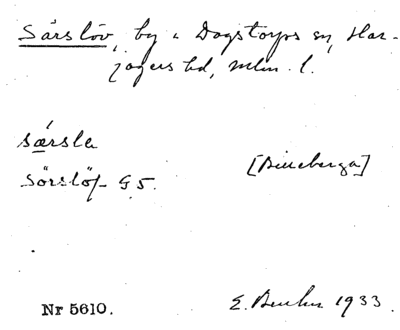 Särslöv, by i Dagstorps sn, Har-
jagers hd, Mlm. l.
særsla
Sörslöf G 5. [Billeberga]
Nr 5610. E. 1933.